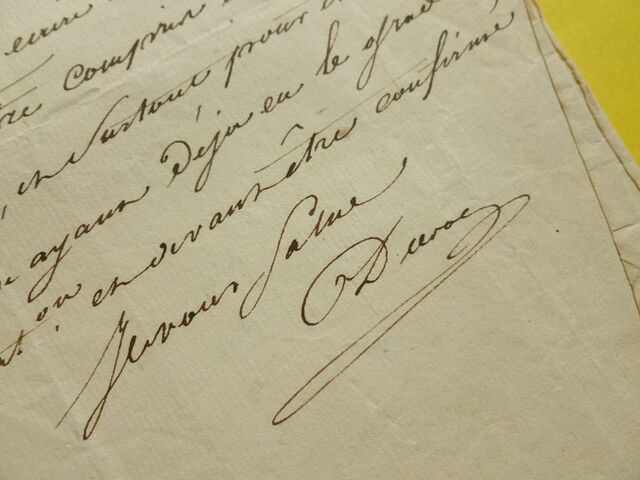 écrire
compris
et Surtout pour
ayant Déja eu le grade
on et devant être confirmé
Je vous Salue
Duroc